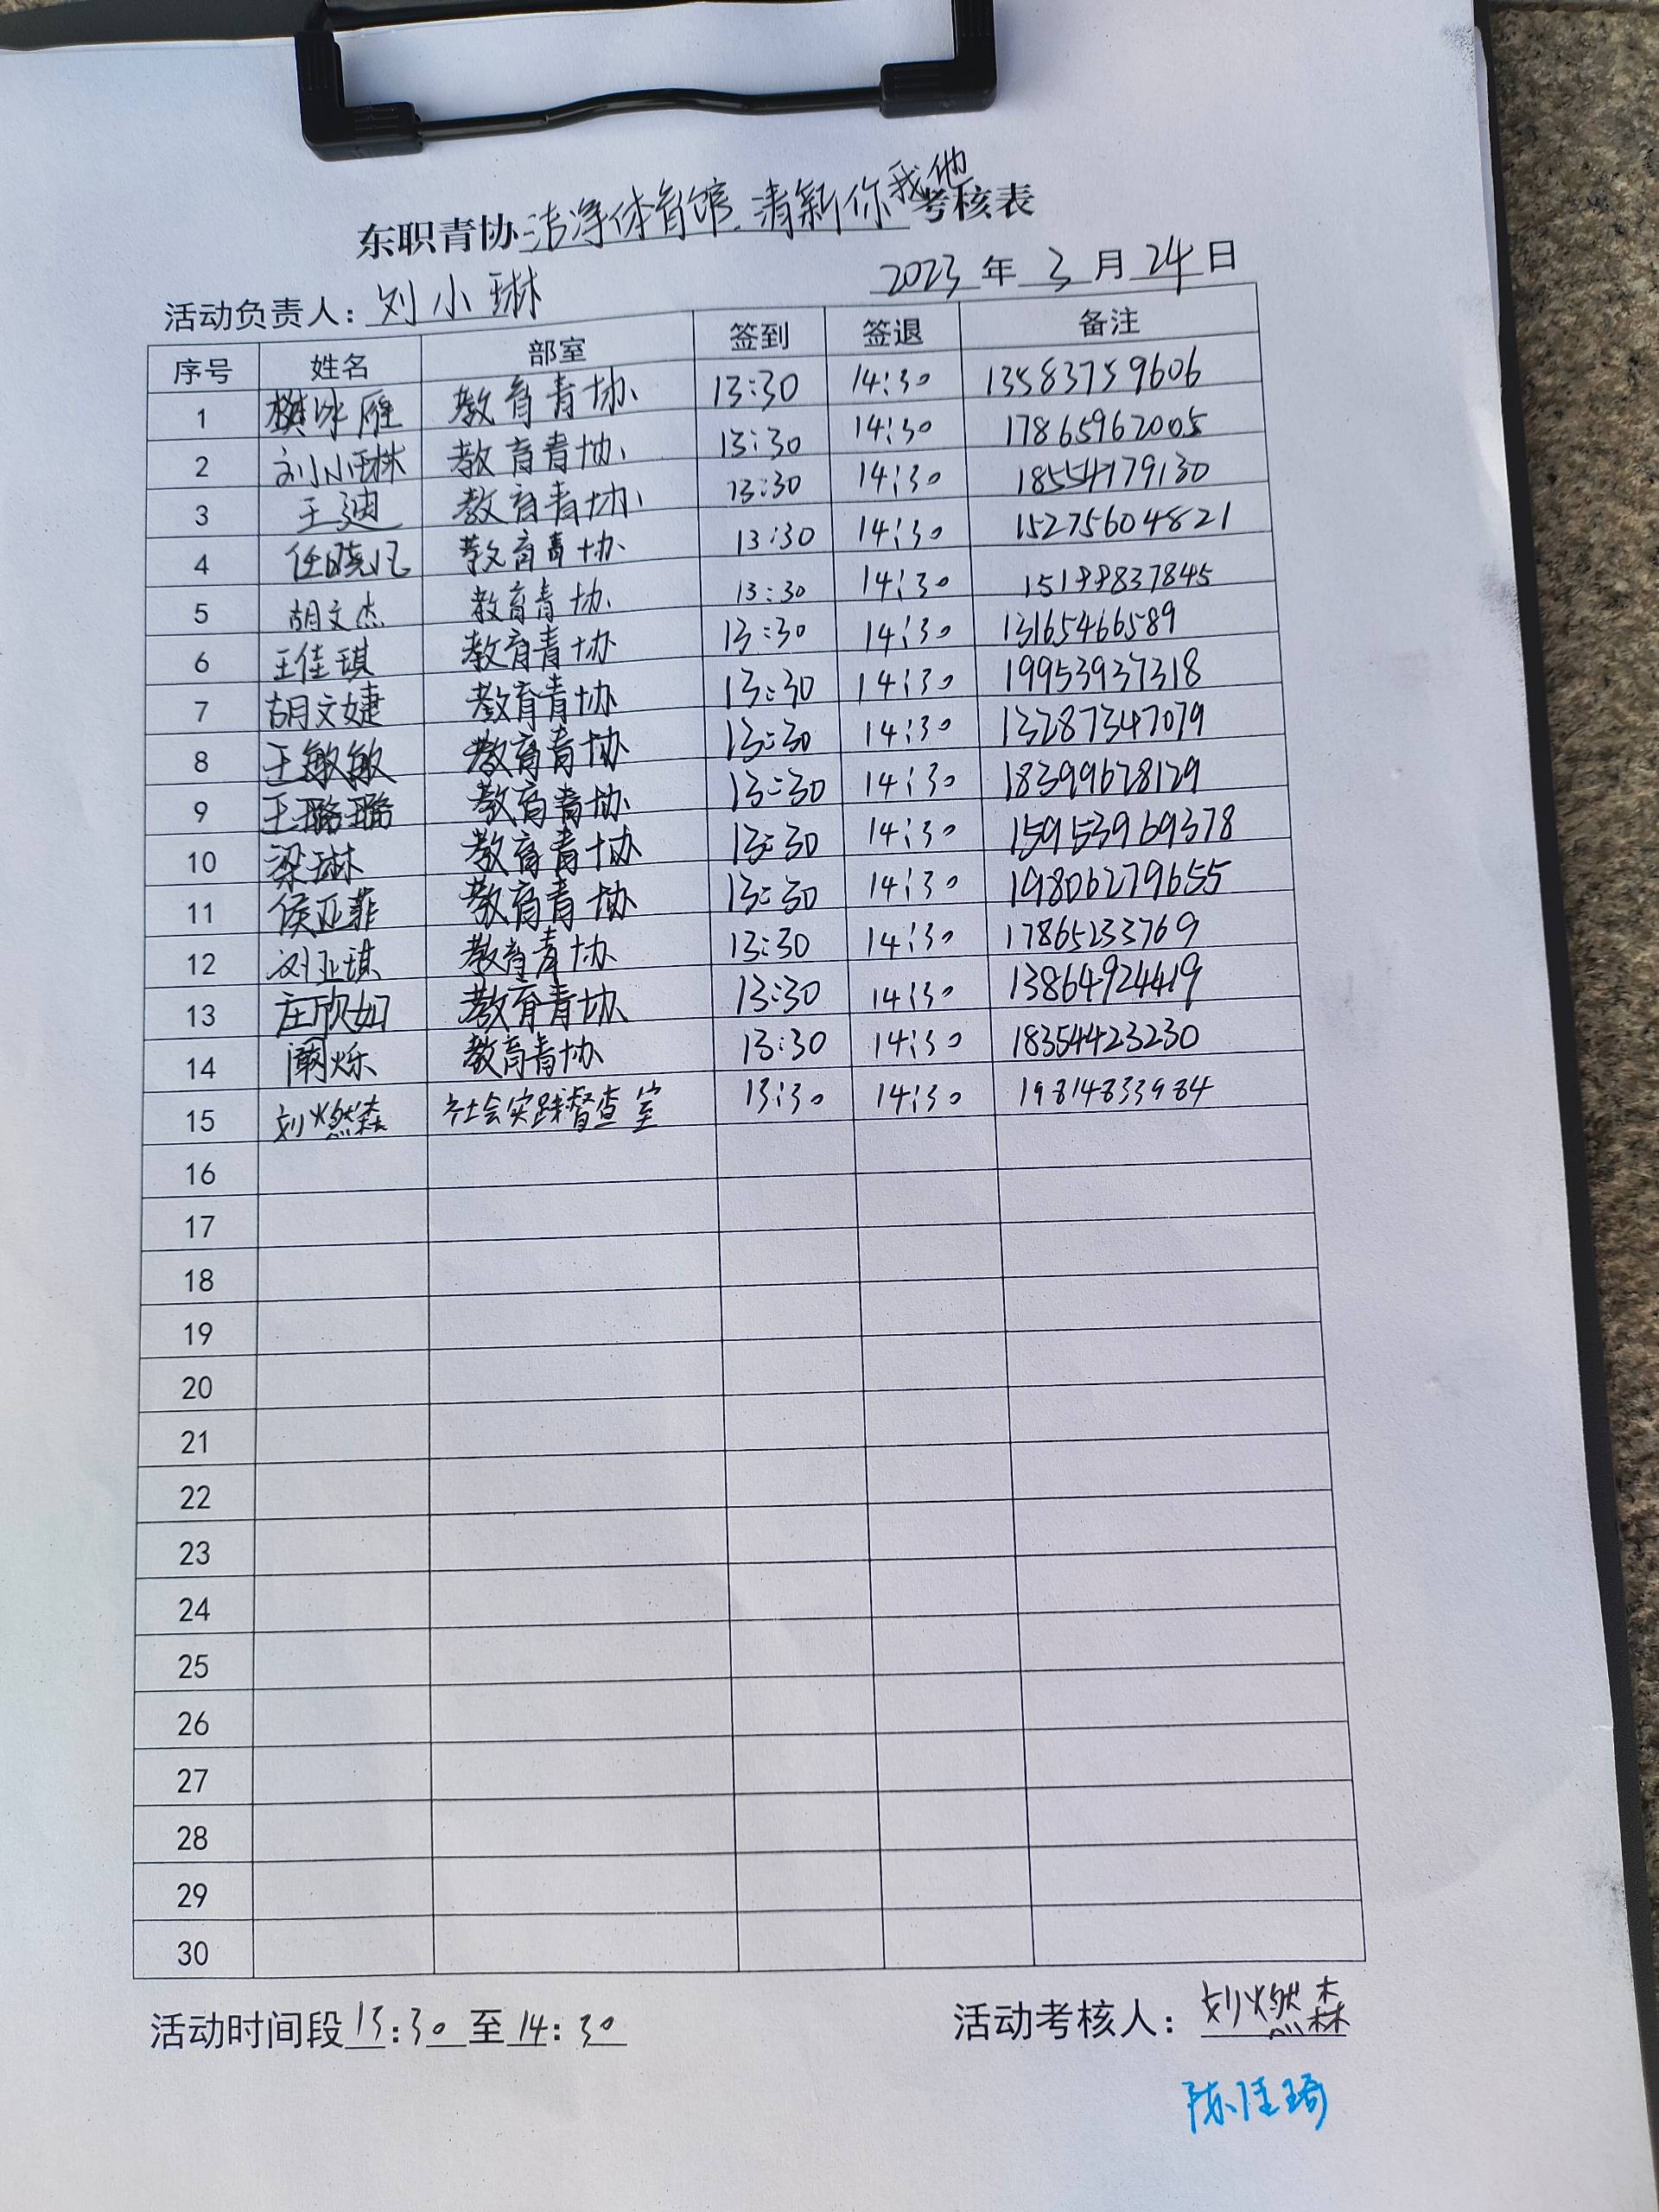 东职青协洁净体育馆.清新你我他考核表
活动负责人：刘小琳 2023年3月24日
序号 姓名 部室 签到 签退 备注
1 樊冰雁 教育青协 13:30 14:30 13583759606
2 刘小琳 教育青协 13:30 14:30 17865962005
3 王迪 教育青协 13:30 14:30 18554179130
4 任晓凡 教育青协 13:30 14:30 15275604821
5 胡文杰 教育青协 13:30 14:30
6 王佳琪 教育青协 13:30 14:30 13165466589
7 胡文婕 教育青协 13:30 14:30 19953937318
8 王敏敏 教育青协 13:30 14:30 13287347079
9 王璐璐 教育青协 13:30 14:30 18399628129
10 梁琳 教育青协 13:30 14:30 15953969378
11 侯亚菲 教育青协 13:30 14:30 19806279655
12 刘亚琪 教育青协 13:30 14:30 17865233769
13 庄欣如 教育青协 13:30 14:30 13864924419
14 阚烁 教育青协 13:30 14:30 18354423230
15 刘燃森 社会实践督查室 13:30 14:30 19814833984
16
17
18
19
20
21
22
23
24
25
26
27
28
29
30
活动时间段13:30至14:30 活动考核人：刘燃森
陈佳琦